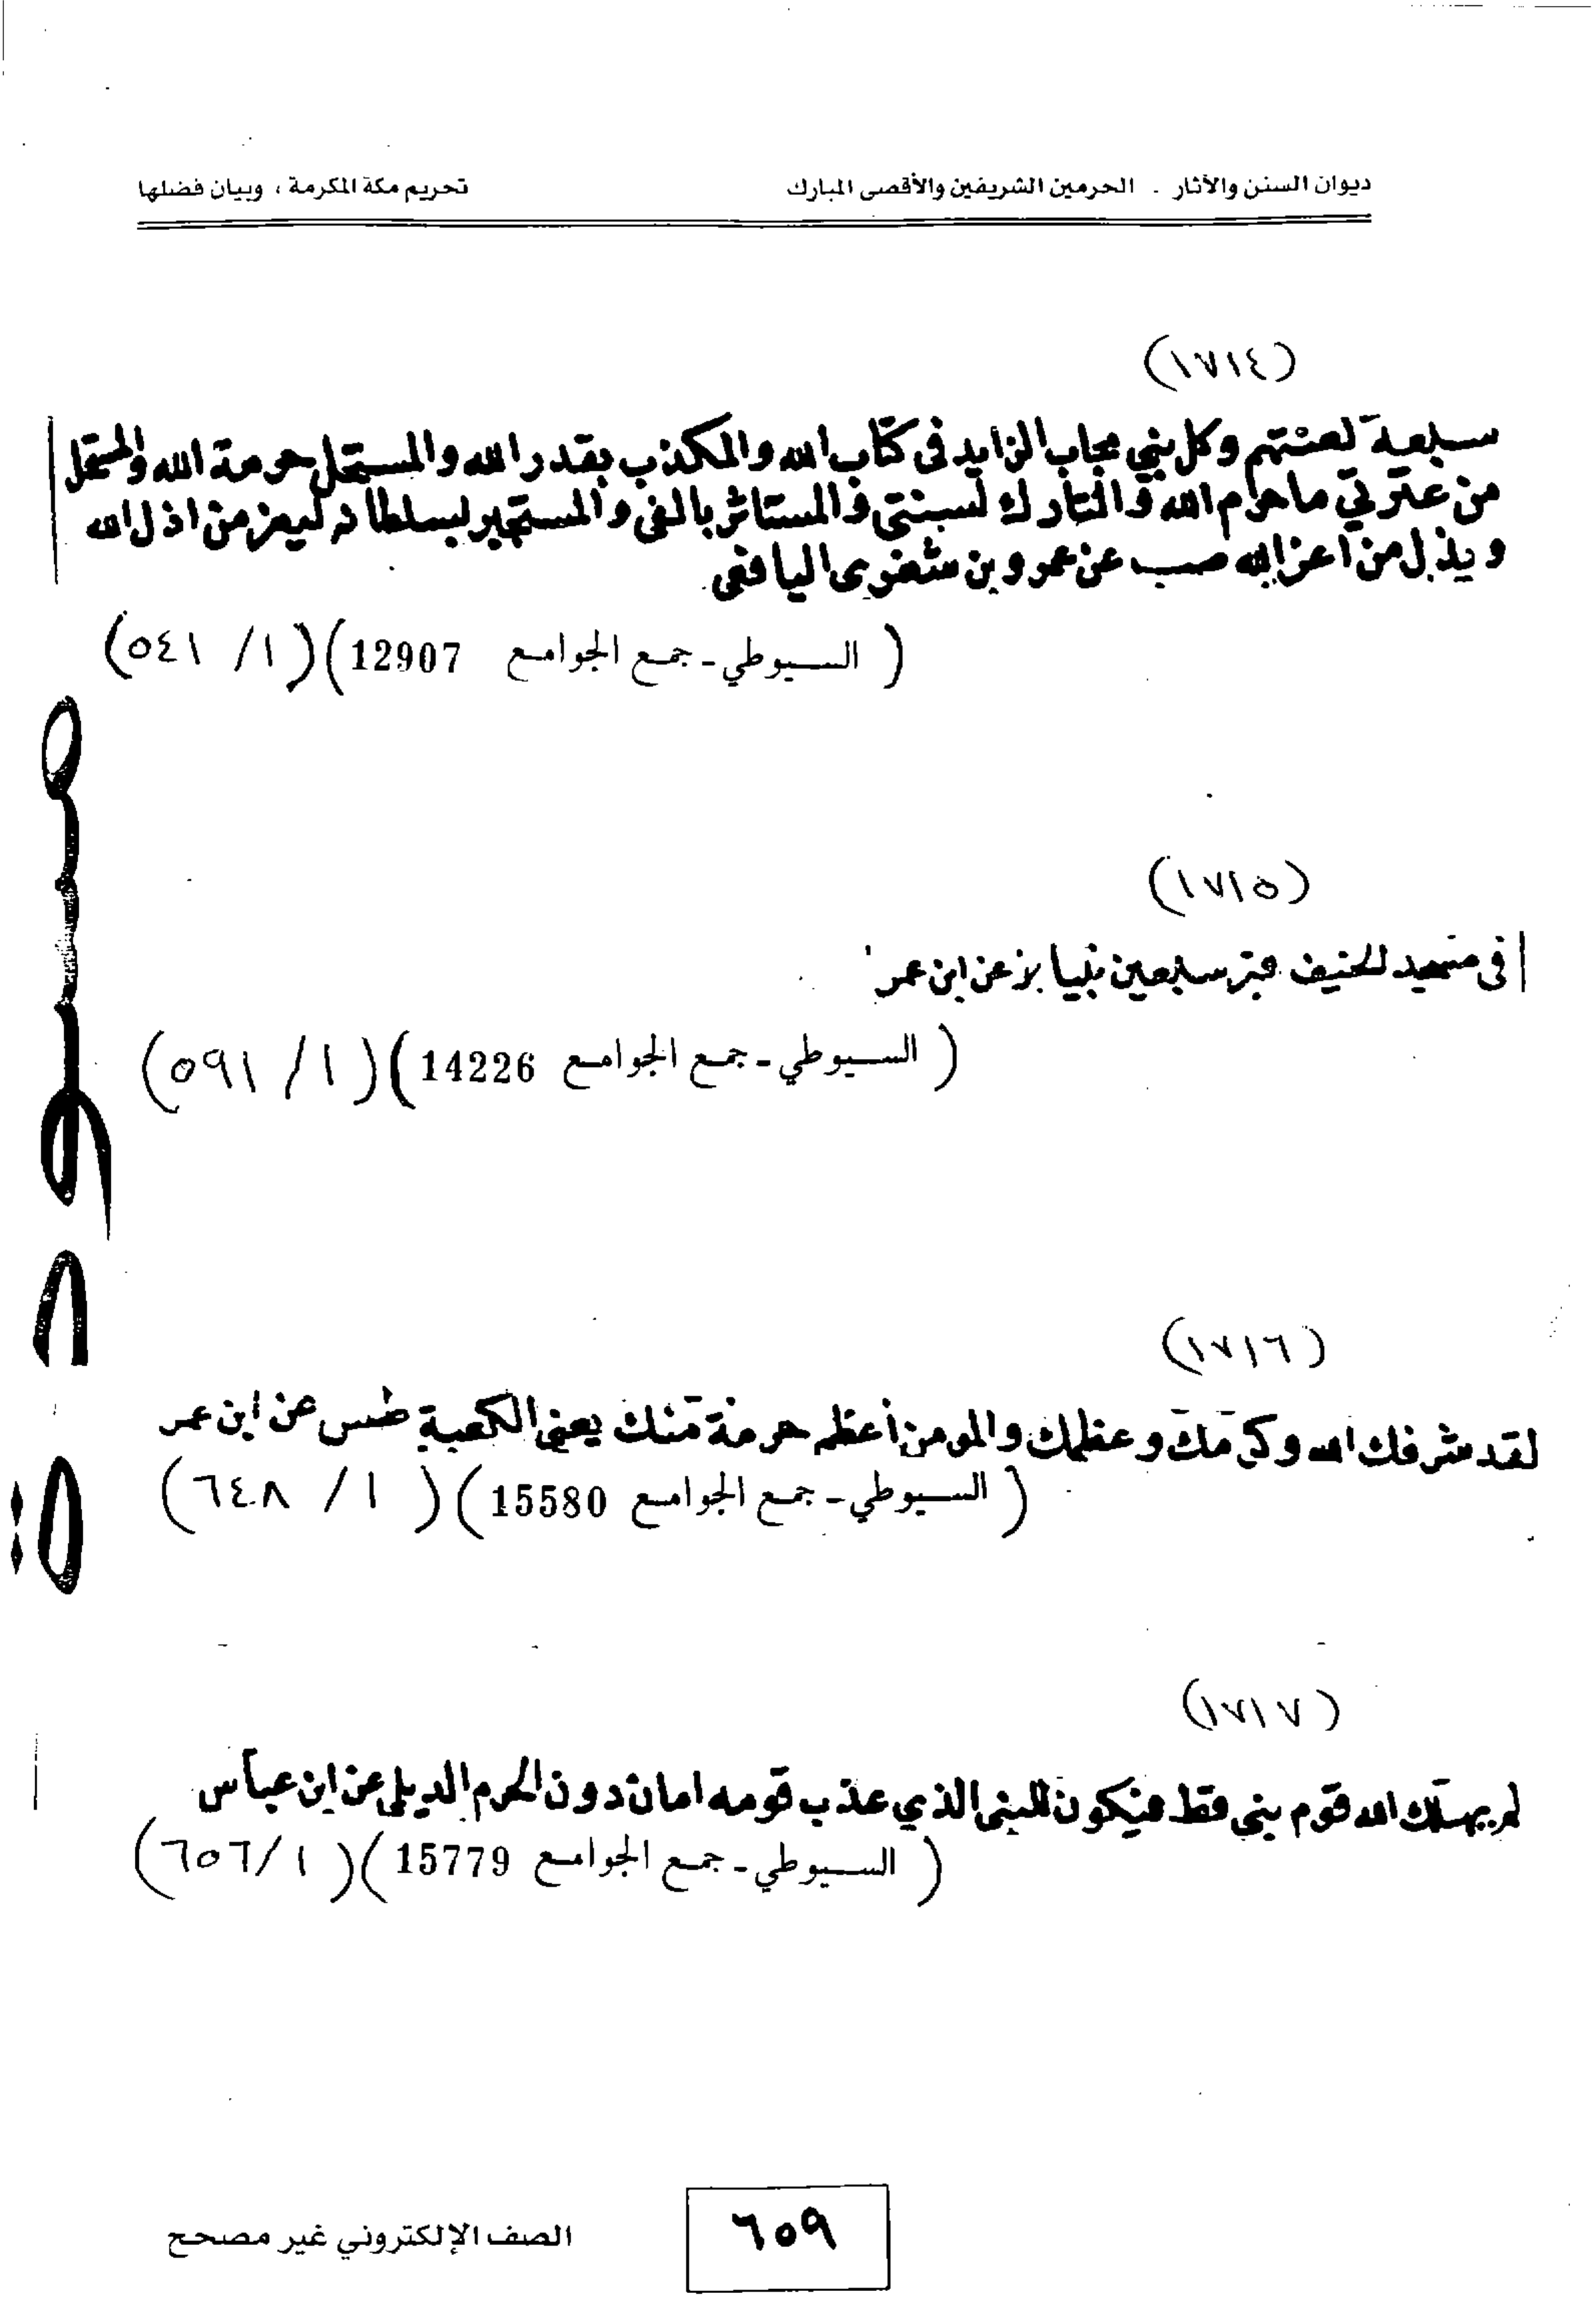 ديوان السنن والآثار - الحرمين الشريفين والأقصى المبارك تحريم مكة المكرمة ، وبيان فضلها
(١٧١٤)
سبعة لعنتهم وكل نبي مجاب الزايد في كتاب الله والمكذب بقدر الله والمستحل حرمة الله والمستحل
من عترتي ما حرم الله والتارك لسنتي والمستاثر بالفى والمتجبر بسلطانه ليعز من اذل الله
ويذل من اعز الله صب عن عمرو بن شغوى اليافعى
( السيوطي - جمع الجوامع 12907)(١/ ٥٤١)
(١٧١٥)
فى مسجد الخيف قبر سبعين نبيا بز عن ابن عمر
( السيوطي - جمع الجوامع 14226)(١/ ٥٩١)
(١٧١٦)
لقد شرفك الله وكرمك وعظمك والمومن أعظم حرمة منك يعنى الكعبة طس عن ابن عمر
( السيوطي - جمع الجوامع 15580)(١/ ٦٤٨)
(١٧١٧)
لم يهلك الله قوم نبى فقط فيكون للنبى الذي عذب قومه امان دون الحرم الديلمى عن ابن عباس
( السيوطي - جمع الجوامع 15779)(١/٦٥٦)
٦٥٩
الصف الإلكتروني غير مصحح